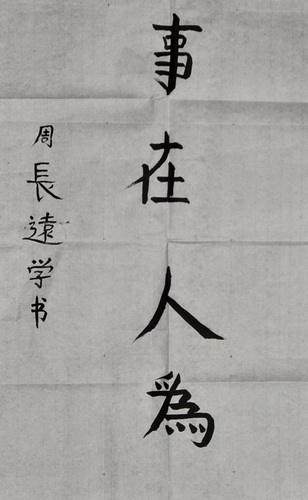 事在人為
周長遠学书